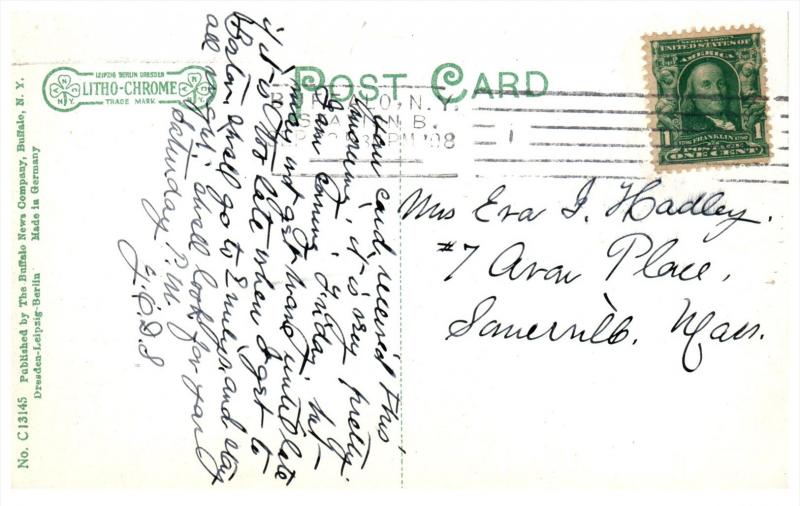 POST CARD
LEIPZIG BERLIN DRESDEN
LITHO-CHROME
TRADE MARK
N Y
N Y
BUFFALO, N.Y.
STATION B.
PM '08
1
SERIES 1902
UNITED STATES OF
AMERICA
1 FRANKLIN 1
POSTAGE
ONE CENT
Mrs Eva J. Hadley.
#7 Avon Place,
Somerville. Mass.
Your card received this
morning, it is very pretty.
I am coming Friday, but
may not get home until late
if it is too late when I get to
Boston shall go to Emily's and stay
all night, shall look for you
Saturday P.M.
J.E.D.S
No. C13145 Published by The Buffalo News Company, Buffalo, N. Y.
Dresden-Leipzig-Berlin Made in Germany